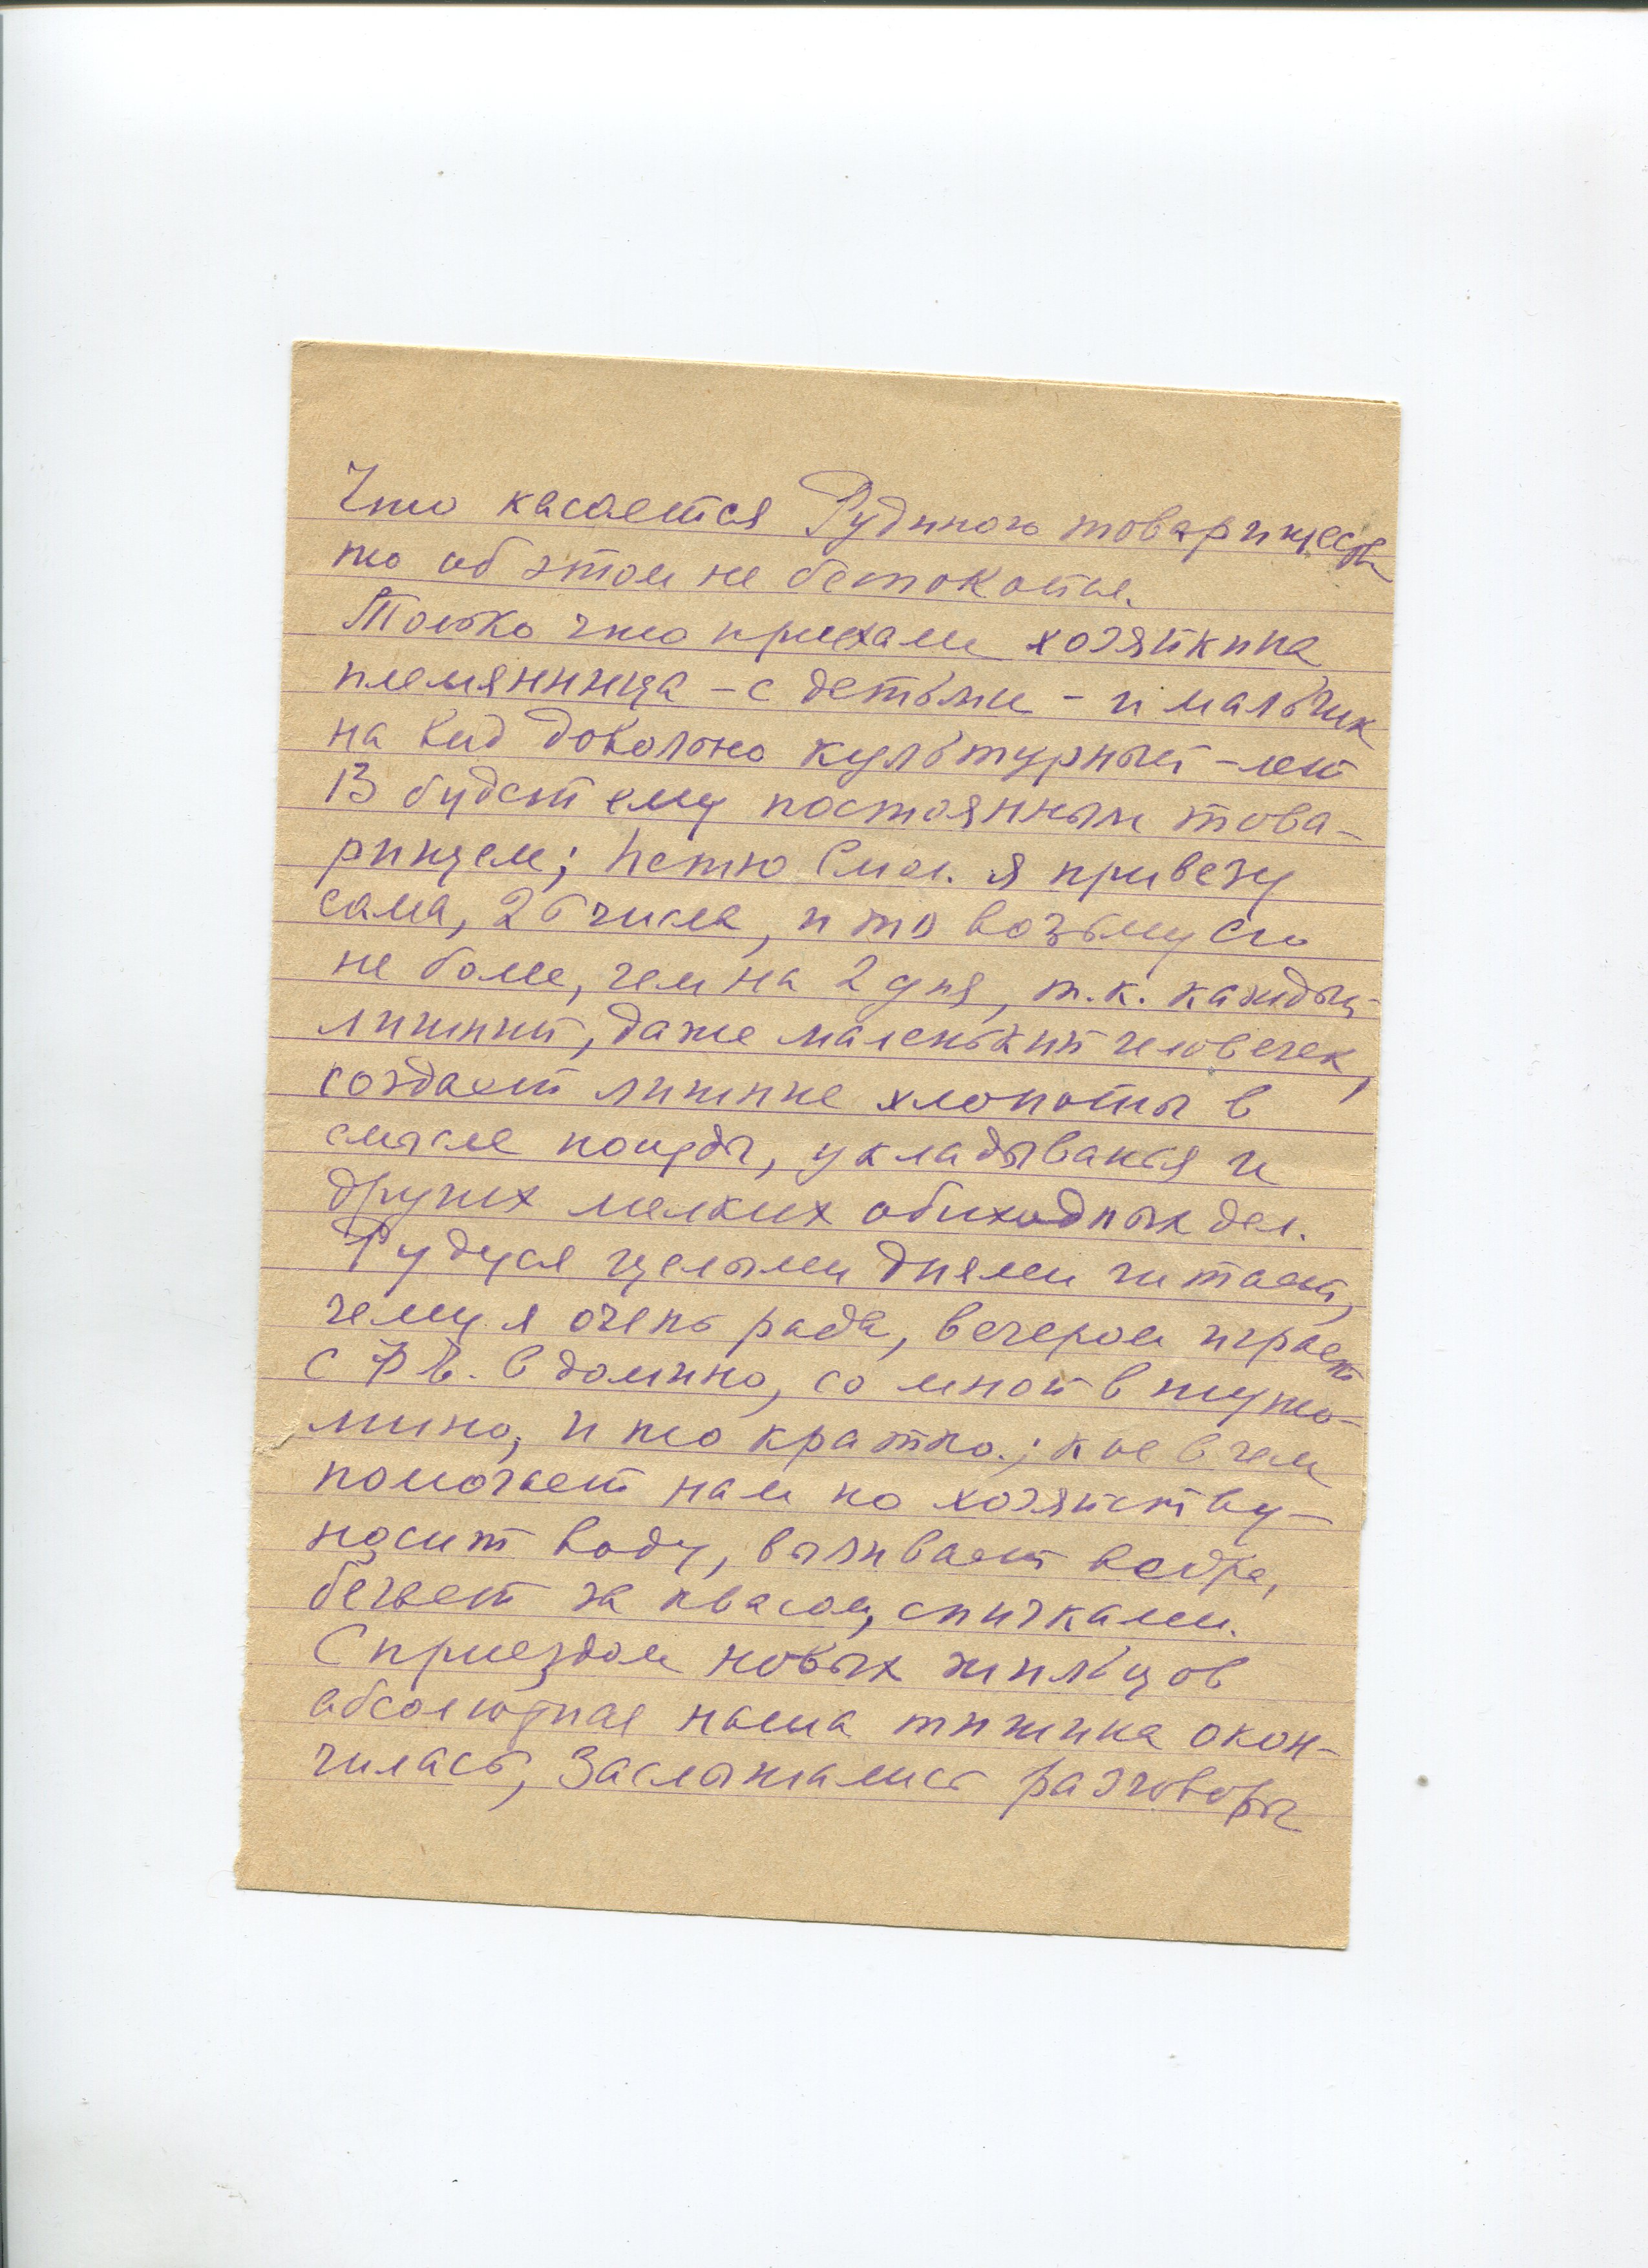 Что касается Рудиного товарищества
то об этом не беспокойся.
Только что приехали хозяйкина
племянница – с детьми – и мальчик
на вид довольно культурный – лет
13 будет ему постоянным това-
рищем; Петю Смол. я привезу
сама, 26 числа, и то возьму его
не более, чем на 2 дня, т.к. каждый
лишний, даже маленький человечек,
создает лишние хлопоты в
смысле посуды, укладывания и
других мелких обиходных дел.
Рудуся целыми днями читает,
чему я очень рада, вечером играет
с РВ. в домино, со мной в
мино, и то кратко.; кое в чем
помогает нам по хозяйству –
носит воду, выливает ведра,
бегает за квасом, спичками.
С приездом новых жильцов
абсолютная наша тишина окон-
чилась, заслышались разговоры